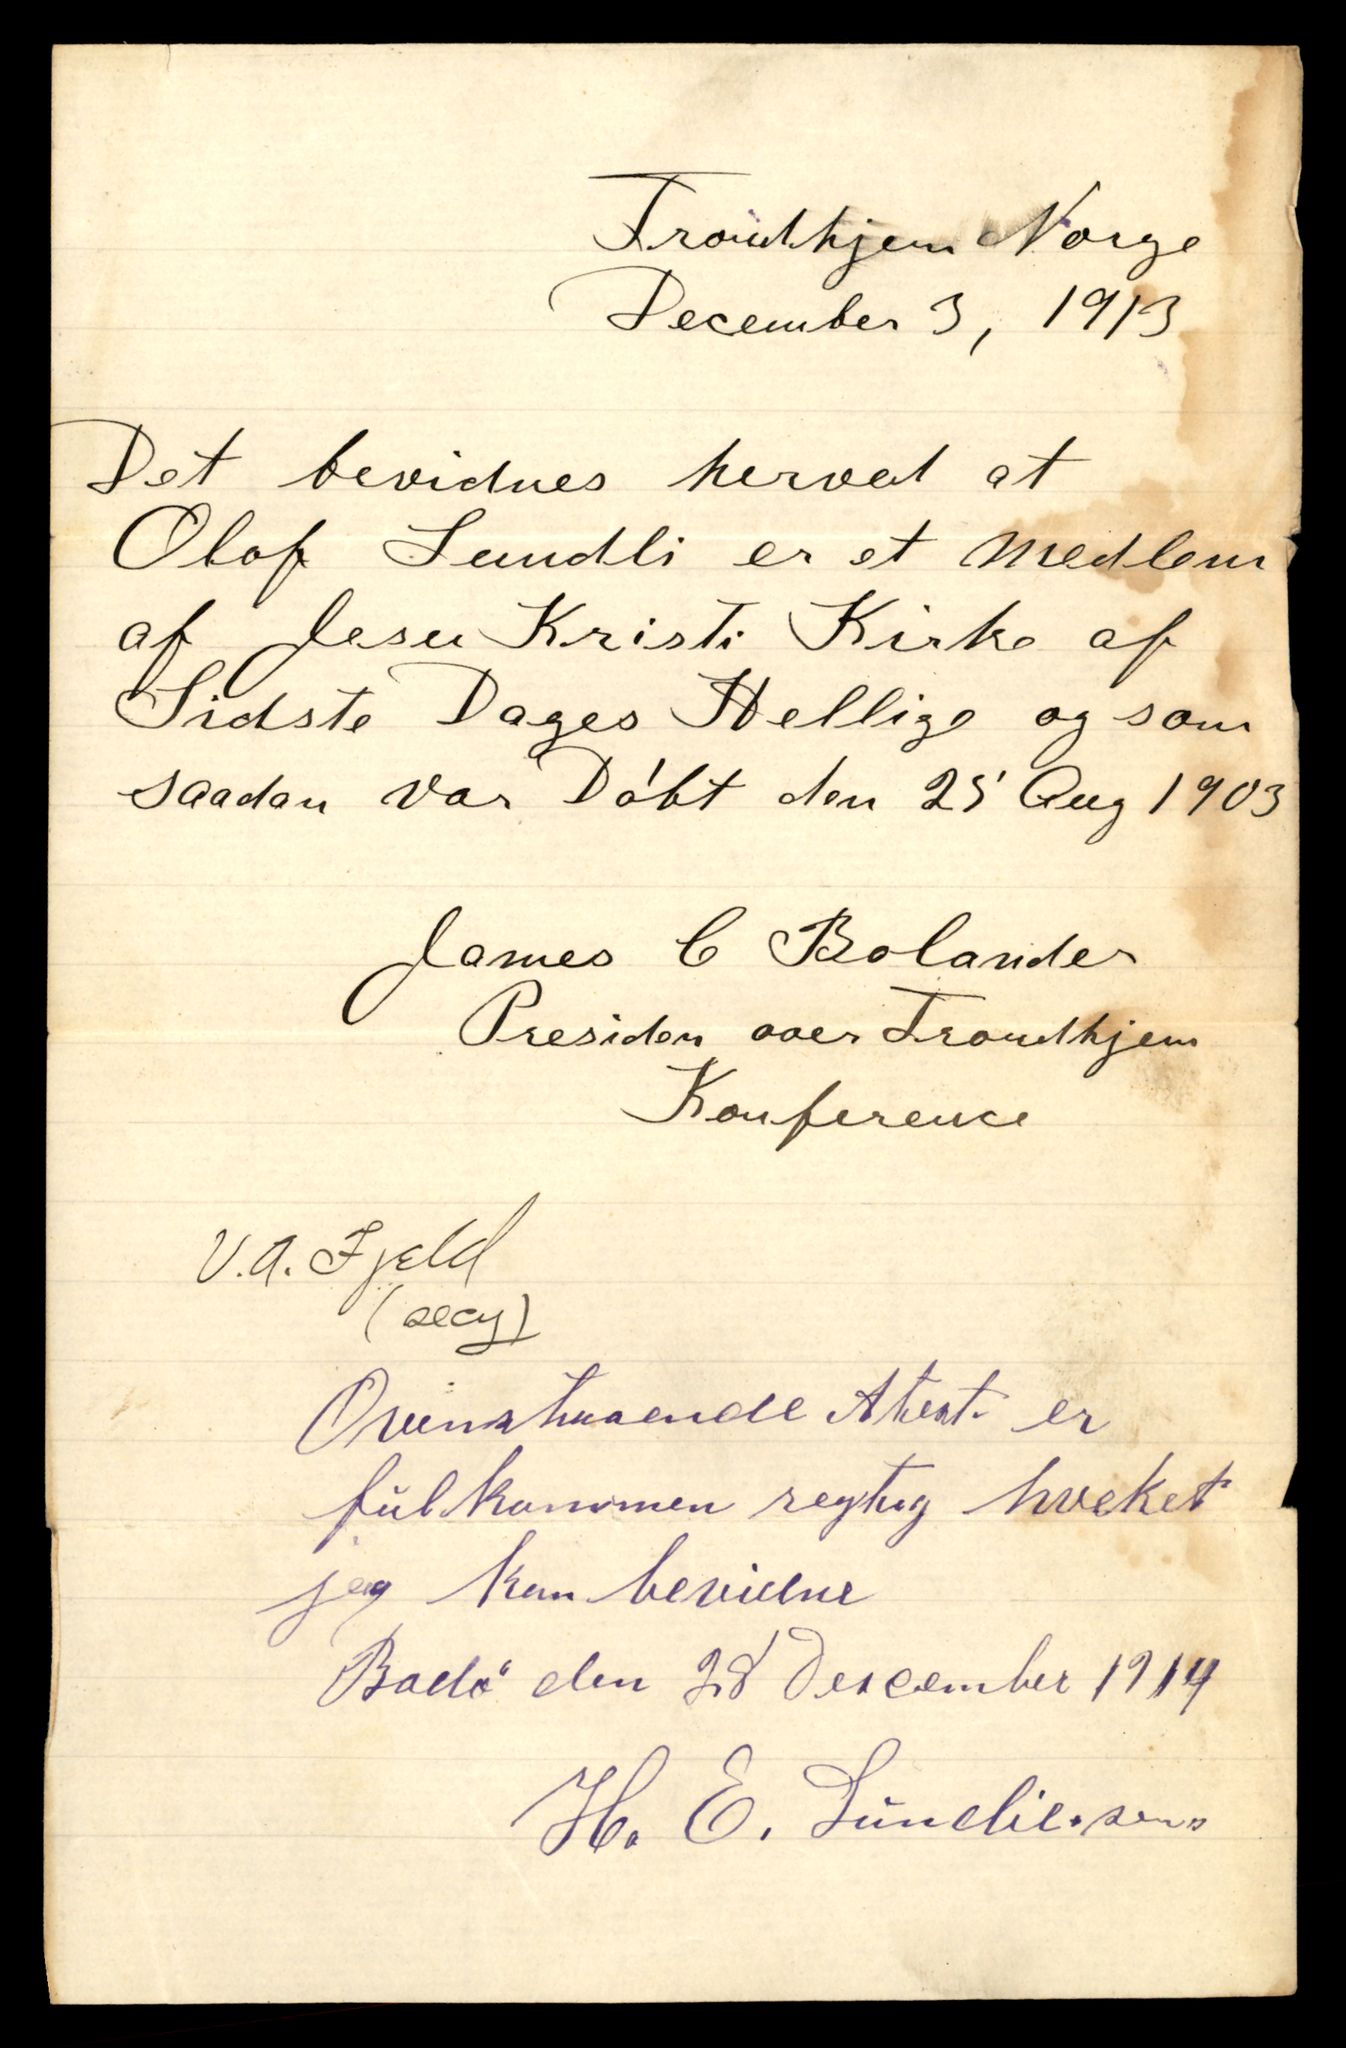 Trondhjem Norge
December 3, 1913
Det bevidnes herved at
Olof Sundli er et Medlem
af Jesu Kristi Kirke af
Sidste Dages Hellige og som
saadan var Döbt den 25 Aug 1903
James C Bolander
Presiden over Trondhjem
Konference
V. A. Fjeld
(secy)
Ovenstaaende Atest er
fulkommen regtig hvelket
jeg kan bevidne
Bodö den 28 Descember 1914
H. E. Sundlie. sen.